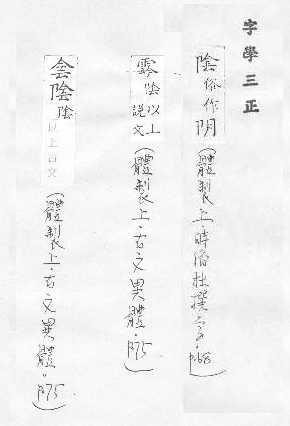 字學三正
陰俗作阴（體製上·時俗杜撰字·p68）
霒陰以上說文（體製上·古文異體·p75）
侌陰陰以上古文（體製上·古文異體。p75）